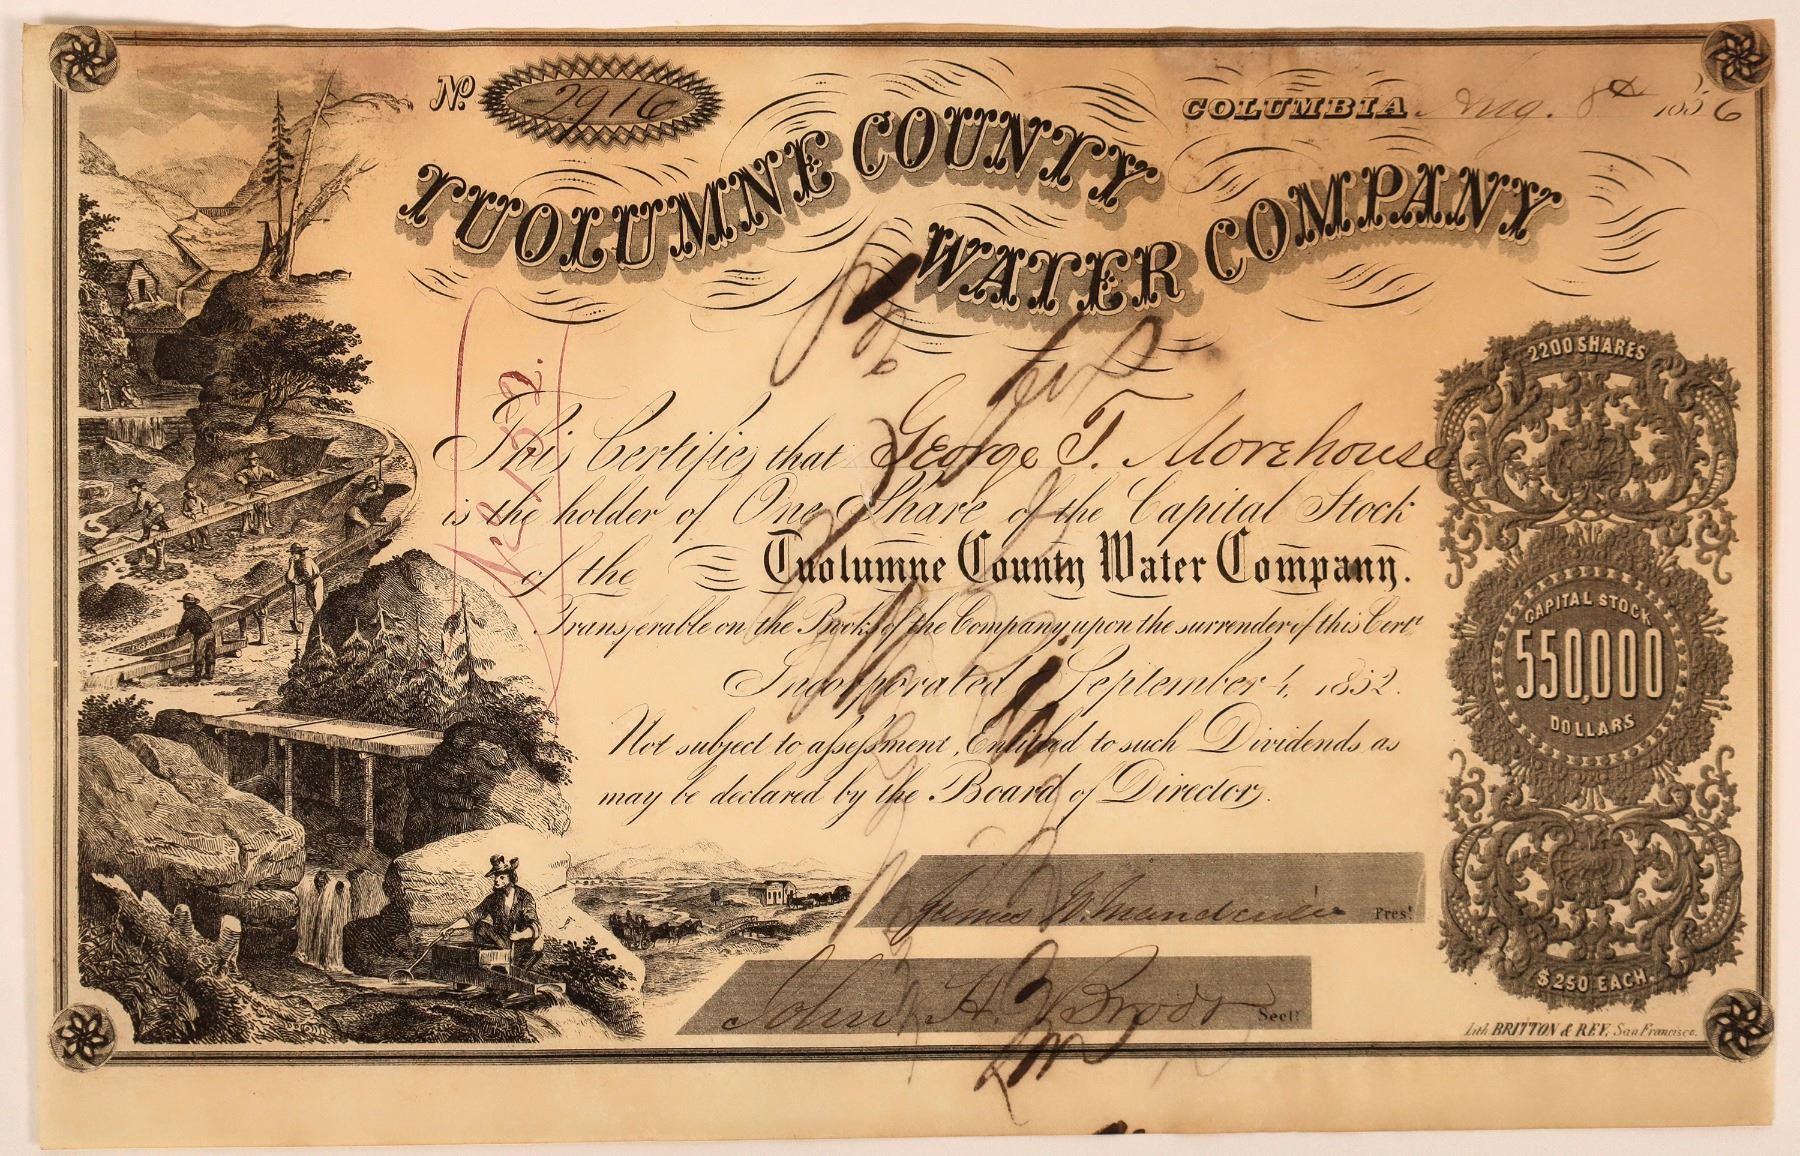 No. 2916
COLUMBIA Aug. 8th 1856
TUOLUMNE COUNTY
WATER COMPANY
2200 SHARES
This Certifies that George T. Morehouse
is the holder of One Share of the Capital Stock
of the Tuolumne County Water Company.
Transferable on the Books of the Company upon the surrender of this Certt
Incorporated September 4, 1852.
Not subject to assessment, Entitled to such Dividends as
may be declared by the Board of Directors.
CAPITAL STOCK
550,000
DOLLARS
Prest
John H. Secty
$250 EACH
Lith BRITTON & REY, San Francisco.